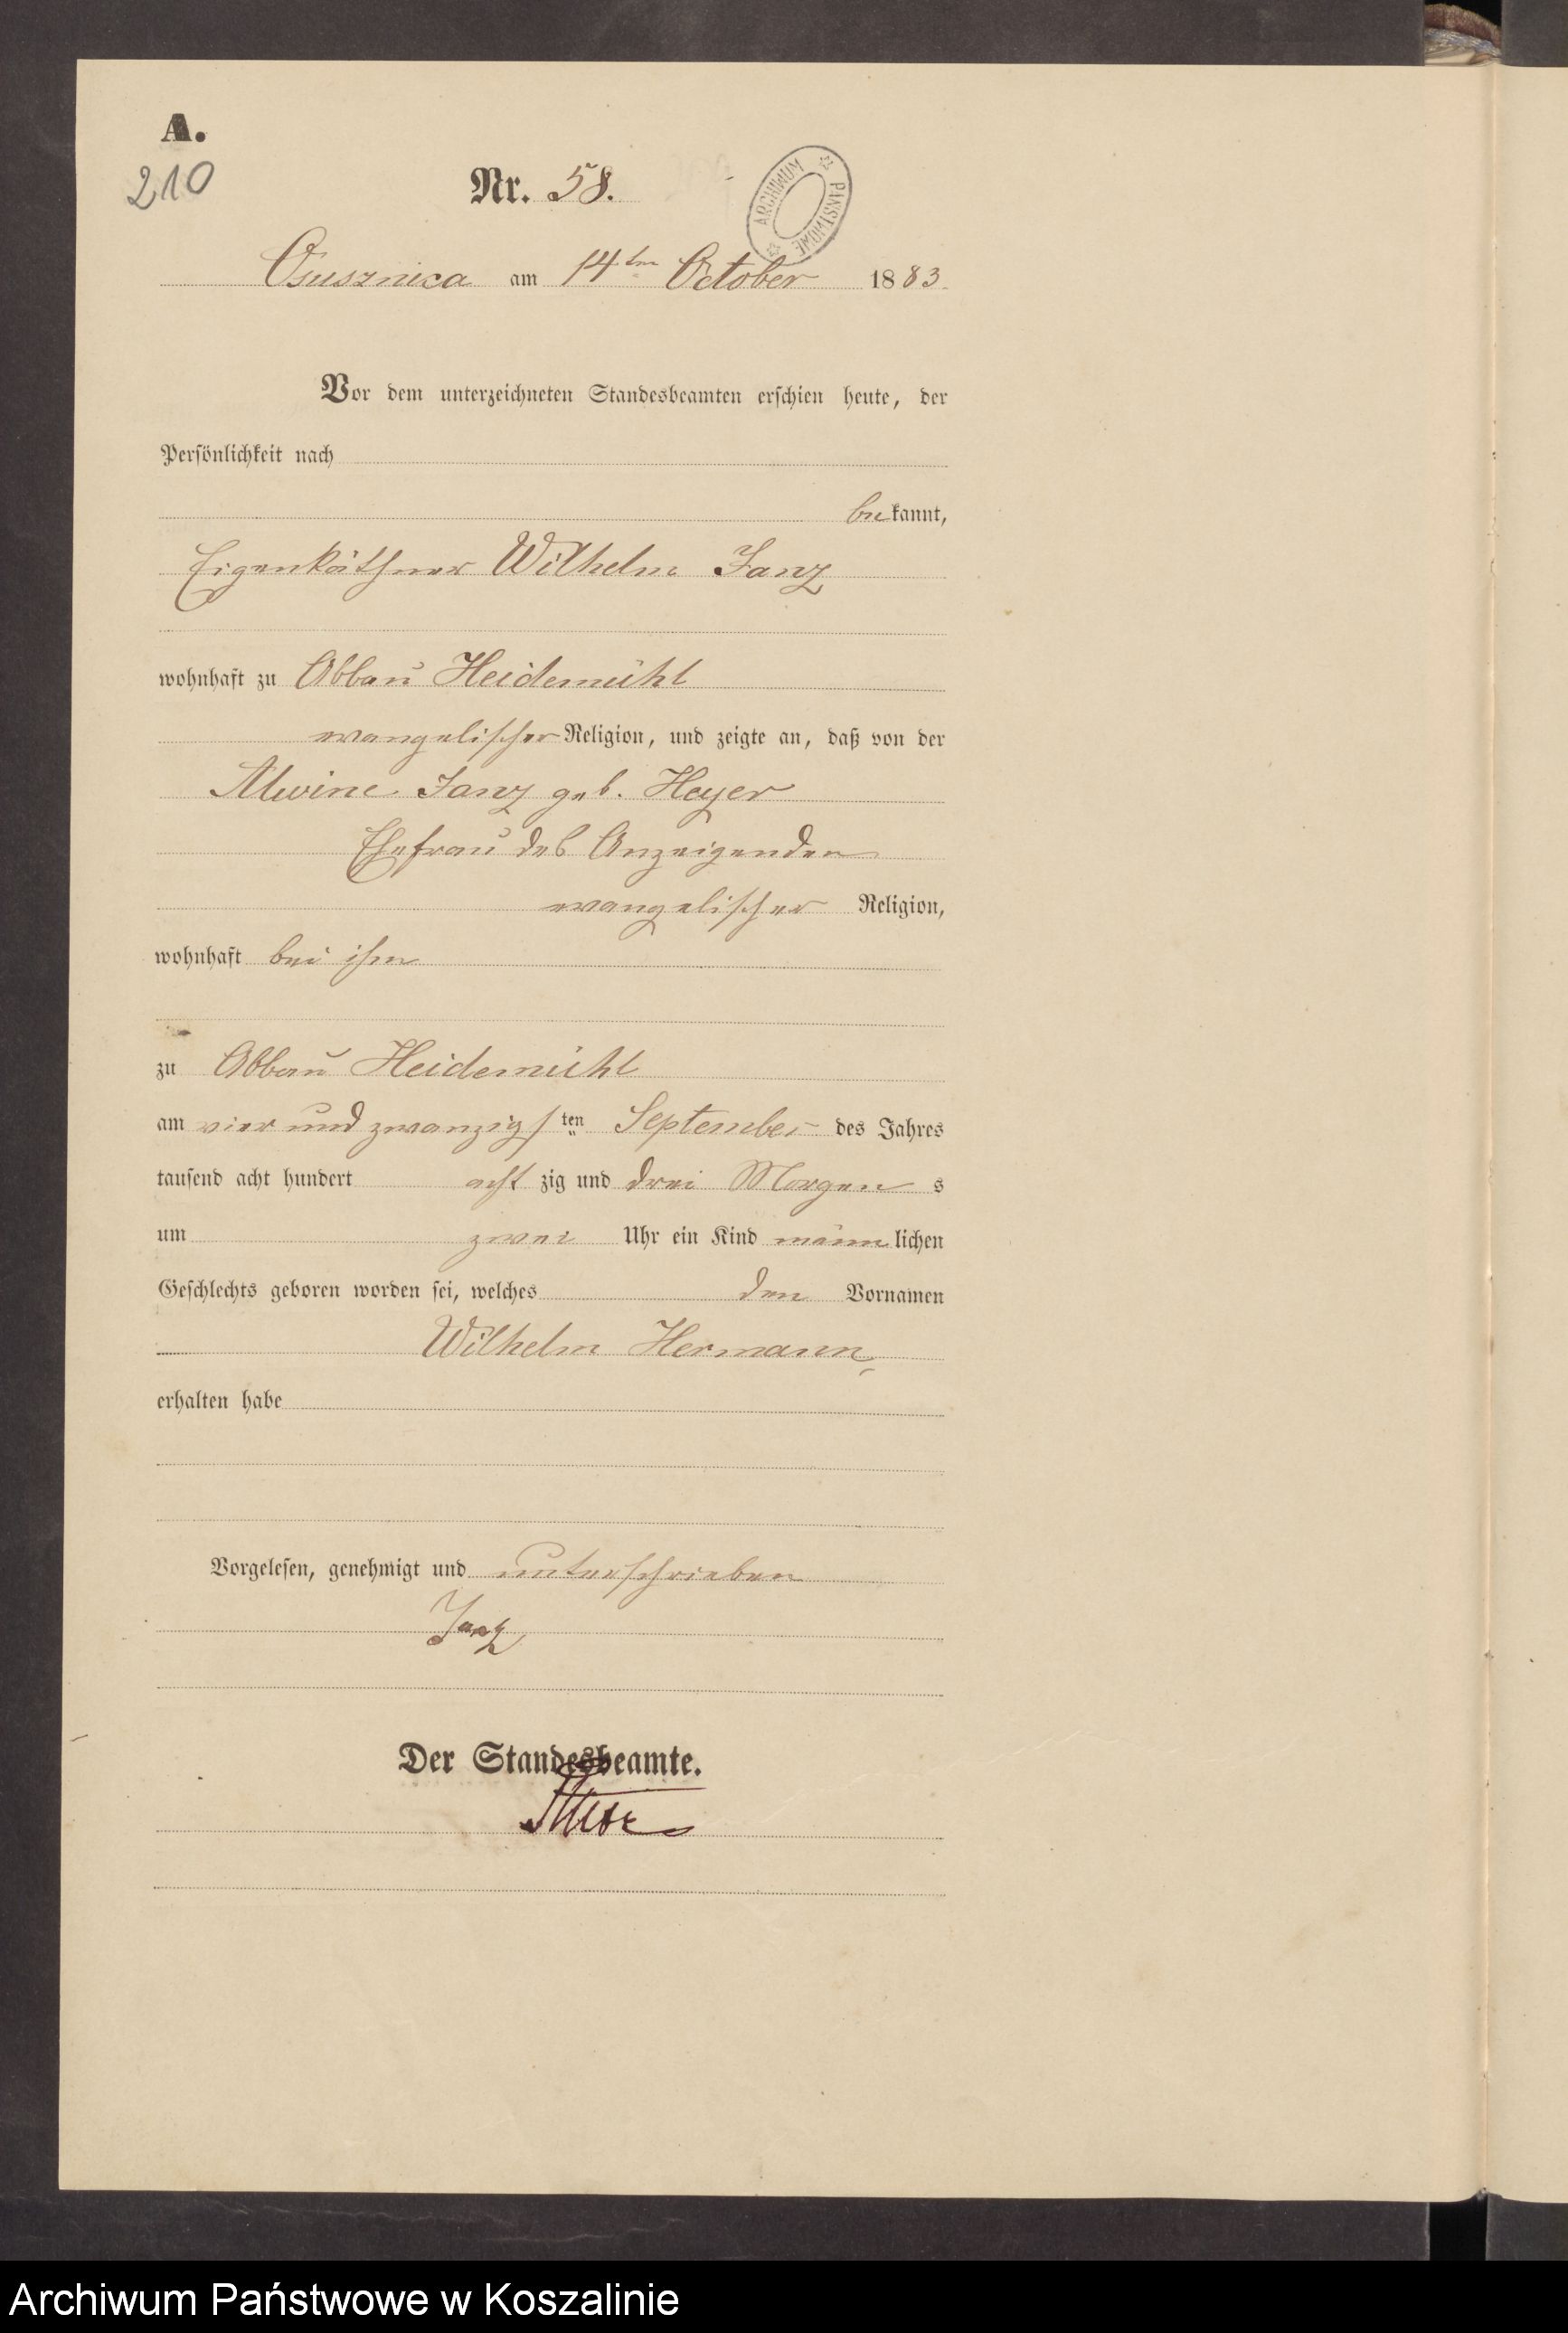 A.
210
Nr. 58.
ARCHIWUM PAŃSTWOWE
Osusznica am 14ten October 1883.
Vor dem unterzeichneten Standesbeamten erschien heute, der
Persönlichkeit nach
bekannt,
Eigenkäthner Wilhelm Janz
wohnhaft zu Abbau Heidemühl
evangelischer Religion, und zeigte an, daß von der
Alwine Janz geb. Heyer
Ehefrau des Anzeigenden
evangelischer Religion,
wohnhaft bei ihm
zu Abbau Heidemühl
am vier und zwanzigsten September des Jahres
tausend acht hundert achtzig und drei Morgens
um zwei Uhr ein Kind männlichen
Geschlechts geboren worden sei, welches den Vornamen
Wilhelm Hermann,
erhalten habe
Vorgelesen, genehmigt und unterschrieben
Janz
Der Standesbeamte.
Archiwum Państwowe w Koszalinie